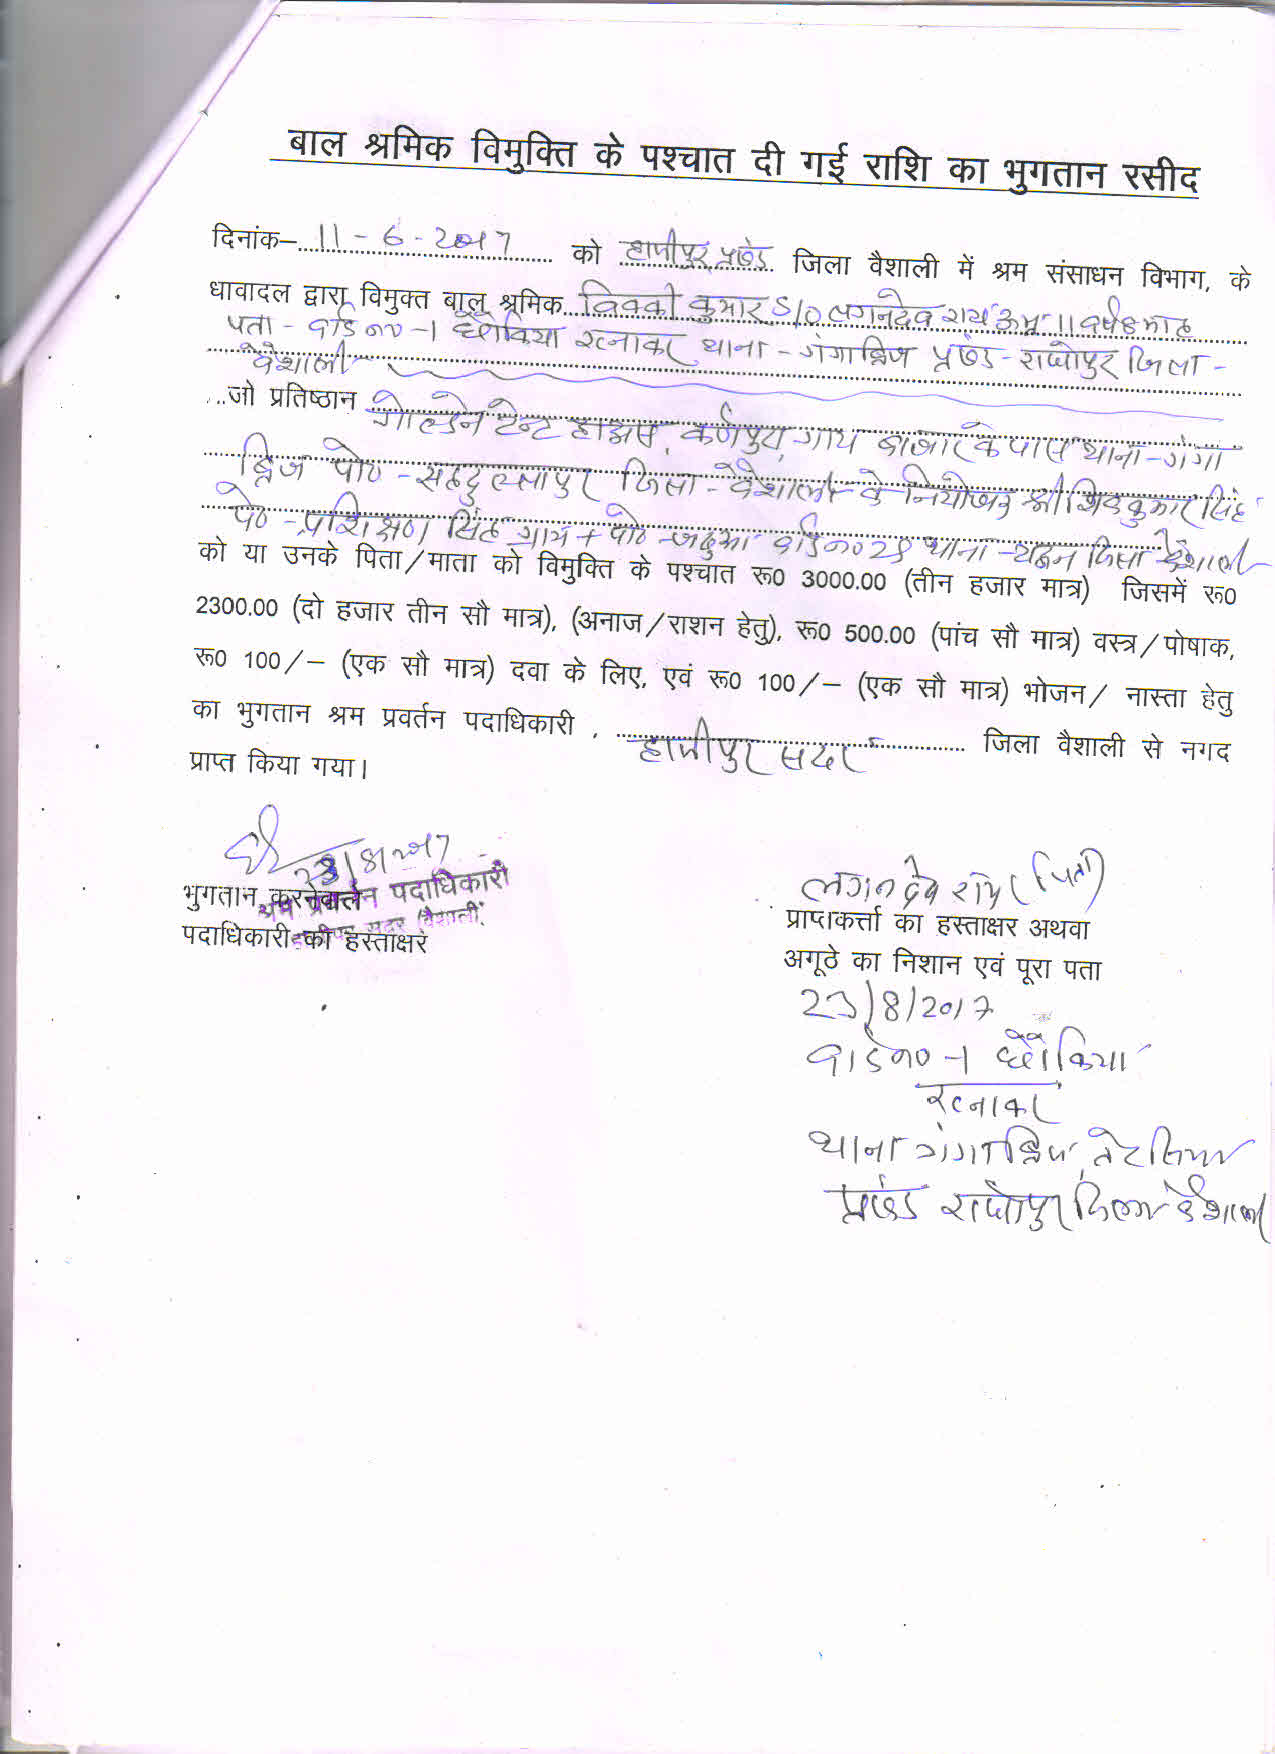 बाल श्रमिक विमुक्ति के पश्चात दी गई राशि का भुगतान रसीद
दिनांक–...11-6-2017... को हाजीपुर प्रखंड जिला वैशाली में श्रम संसाधन विभाग, के
धावादल द्वारा विमुक्त बाल श्रमिक...विक्की कुमार S/O लगनदेव राय उम्र 11 वर्ष 8 माह
पता - वार्ड न० -1 रत्नाकर थाना - गंगाब्रिज प्रखंड - राघोपुर जिला -
वैशाली
...जो प्रतिष्ठान गोल्डेन टेन्ट हाउस, कर्णपुरा, गाय बाजार के पास थाना - गंगा
ब्रिज पो० - जिला - वैशाली के नियोजक श्री शिवकुमार सिंह
पे० - सिंह ग्राम + पो० - जढुआ वार्ड न० 28 थाना - जिला - वैशाली
को या उनके पिता/माता को विमुक्ति के पश्चात रू0 3000.00 (तीन हजार मात्र) जिसमें रू0
2300.00 (दो हजार तीन सौ मात्र), (अनाज/राशन हेतु), रू0 500.00 (पांच सौ मात्र) वस्त्र/पोषाक,
रू0 100/– (एक सौ मात्र) दवा के लिए, एवं रू0 100/– (एक सौ मात्र) भोजन/ नास्ता हेतु
का भुगतान श्रम प्रवर्तन पदाधिकारी , हाजीपुर सदर जिला वैशाली से नगद
प्राप्त किया गया।
23/8/2017
भुगतान करनेवाले
श्रम प्रवर्तन पदाधिकारी
पदाधिकारी की हस्ताक्षर
सदर (वैशाली)
लगन देव राय (पिता)
प्राप्तकर्त्ता का हस्ताक्षर अथवा
अगूठे का निशान एवं पूरा पता
23/8/2017
वार्ड न० -1
रत्नाकर
थाना गंगाब्रिज, तेरसिया
प्रखंड राघोपुर जिला वैशाली